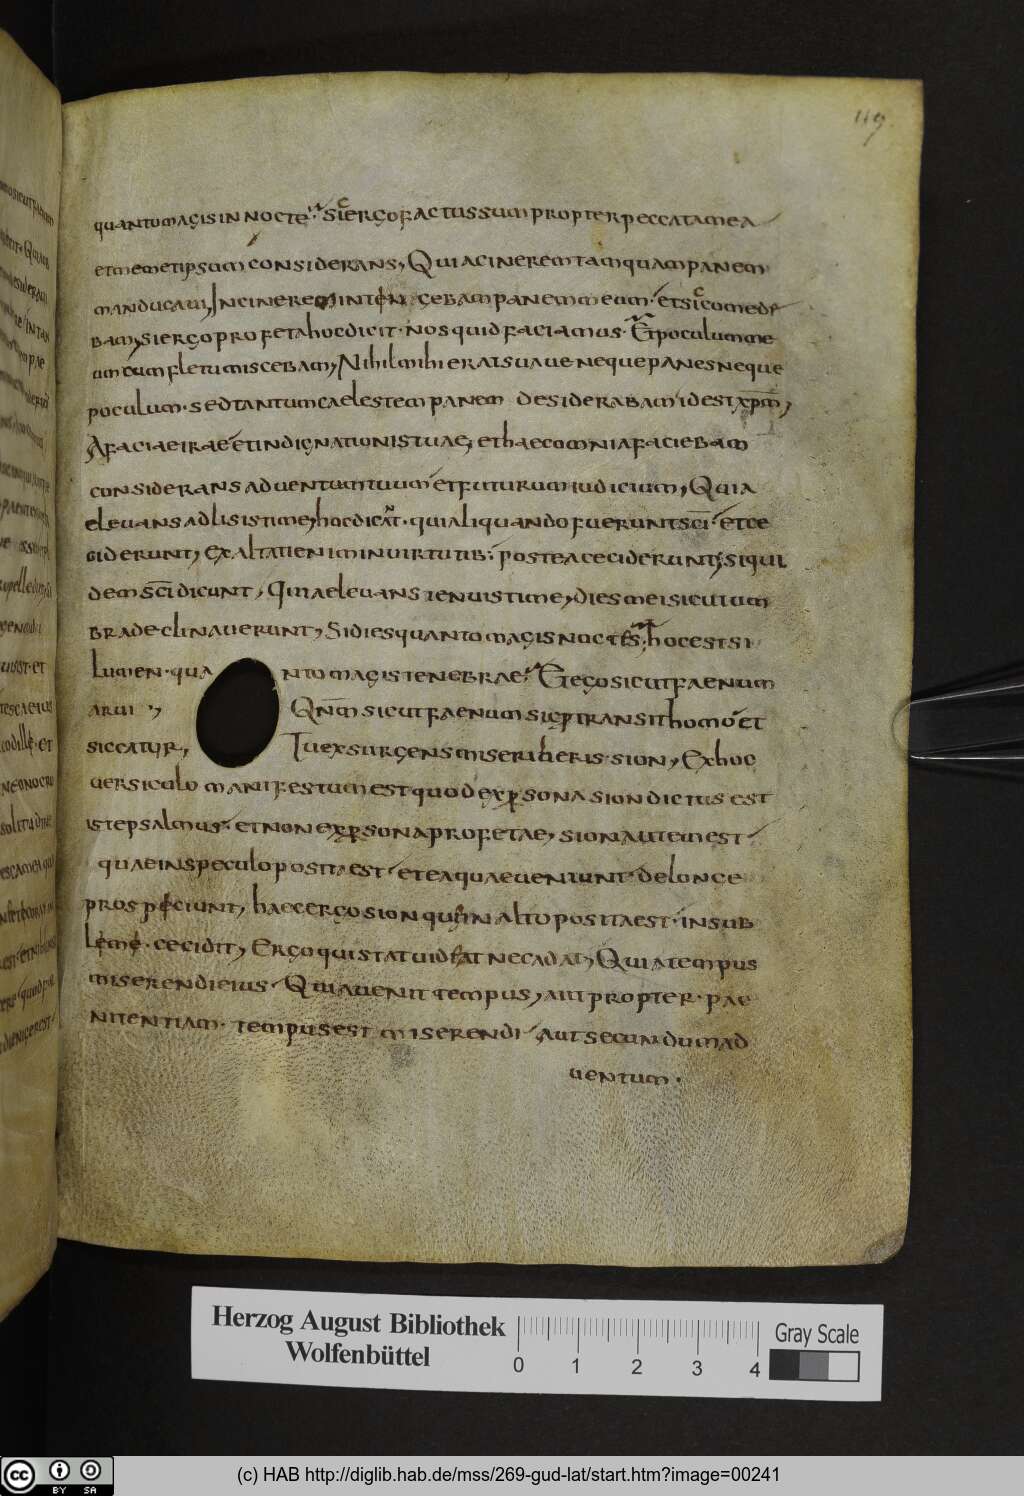 119
quanto magis in nocte· Sic ergo factus sum propter peccata mea
et memetipsum considerans, Quia cinerem tamquam panem
manducaui, In cinerem intingebam panem meum· et sic comede
bam, sic ergo profeta hoc dicit· nos quid faciamus· Et poculum me
um cum fletu miscebam, Nihil mihi erat suaue neque panes neque
poculum· sed tantum caelestem panem desiderabam id est xpm,
A facia eirae et indignationis tuae, et haec omnia faciebam
considerans aduentum tuum et futurum iudicium, Quia
eleuans adlisisti me, hoc dicat· quia aliquando fuerunt sci· et ce
ciderunt, Exaltati enim in uirtutib· postea ceciderunt, si qui
dem sci dicunt, Quia eleuans ienuisti me, dies mei sicut um
bra declinauerunt, Si dies quanto magis noctes, hoc est si
lumen· qua nto magis tenebrae, Et ego sicut faenum
arui, Qnm sicut faenum sic transit homo et
siccatur, Tu exsurgens miseriberis sion, Ex hoc
uersiculo manifestum est quod ex psona sion dictus est
iste psalmus· et non ex psona profetae, sion autem est
quae in speculo posita est· et ea quae ueniunt· de longe
prospiciunt, haec ergo sion quin alto posita est· in sub
leme· cecidit, Ergo qui stat uideat ne cadat, Quia tempus
miserendi eius· Quia uenit tempus, aut propter· pae
nitentiam· tempus est miserendi· aut secundum ad
uentum·
Herzog August Bibliothek
Wolfenbüttel
0 1 2 3 4
Gray Scale
cc BY SA
(c) HAB http://diglib.hab.de/mss/269-gud-lat/start.htm?image=00241